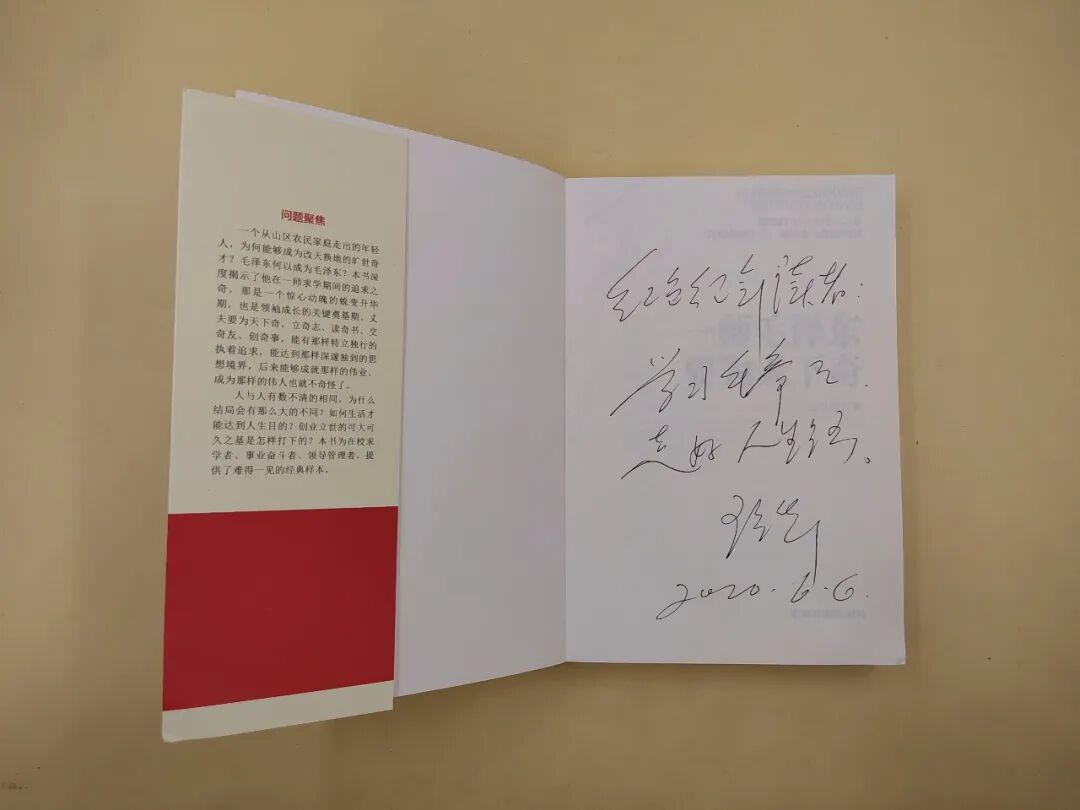 问题聚焦
一个从山区农民家庭走出的年轻
人，为何能够成为改天换地的旷世奇
才？毛泽东何以成为毛泽东？本书深
度揭示了他在一师求学期间的追求之
奇，那是一个惊心动魄的蜕变升华
期，也是领袖成长的关键奠基期。丈
夫要为天下奇，立奇志、读奇书、交
奇友、创奇事，能有那样特立独行的
执着追求，能达到那样深邃独到的思
想境界，后来能够成就那样的伟业、
成为那样的伟人也就不奇怪了。
人与人有数不清的相同，为什么
结局会有那么大的不同？如何生活才
能达到人生目的？创业立世的可大可
久之基是怎样打下的？本书为在校求
学者、事业奋斗者、领导管理者，提
供了难得一见的经典样本。
读者：
学习毛
走好人生路。
2020.6.6.